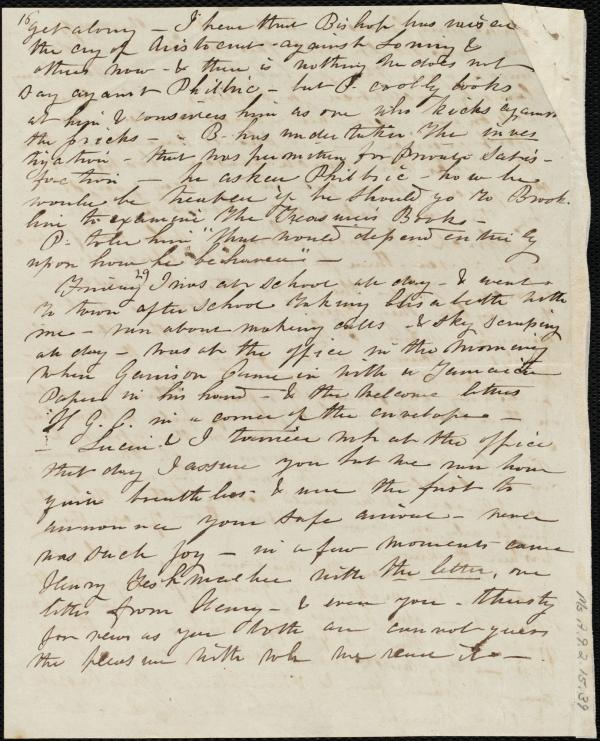 16
get along - I hear that Bishop has raised
the cry of Aristocrat - against Loring &
others now - & there is nothing he does not
say against Philbric - but P. coolly looks
at him & considers him as one who kicks against
the pricks - - B. has undertaken the inves
tigation - that was permitted for Private Satis-
faction - he asked Philbric - how he
would be treated if he should go to Brook
line to examine the Treasurer's Books -
P- told him "that would depend entirely
upon how he behaved" -
Friday 29 I was at school all day - & went
to town after school taking Elisabeth with
me - run about making calls - & sky scraping
all day - was at the office in the morning
when Garrison came in with a Jamaica
Paper in his hand - & the welcome letters
H. G. C. in a corner of the envelope -
- Lucia & I at the office
that day I assure you but we run home
quite breathless - & were the first to
announce your safe arrival - never
was such joy - in a few moments came
Henry with the letter, one
letter from Henry - & even you - thirsty
for news as you both are cannot guess
the pleasure with wh we read it -
Ms. A. 9. 2. 15. 39